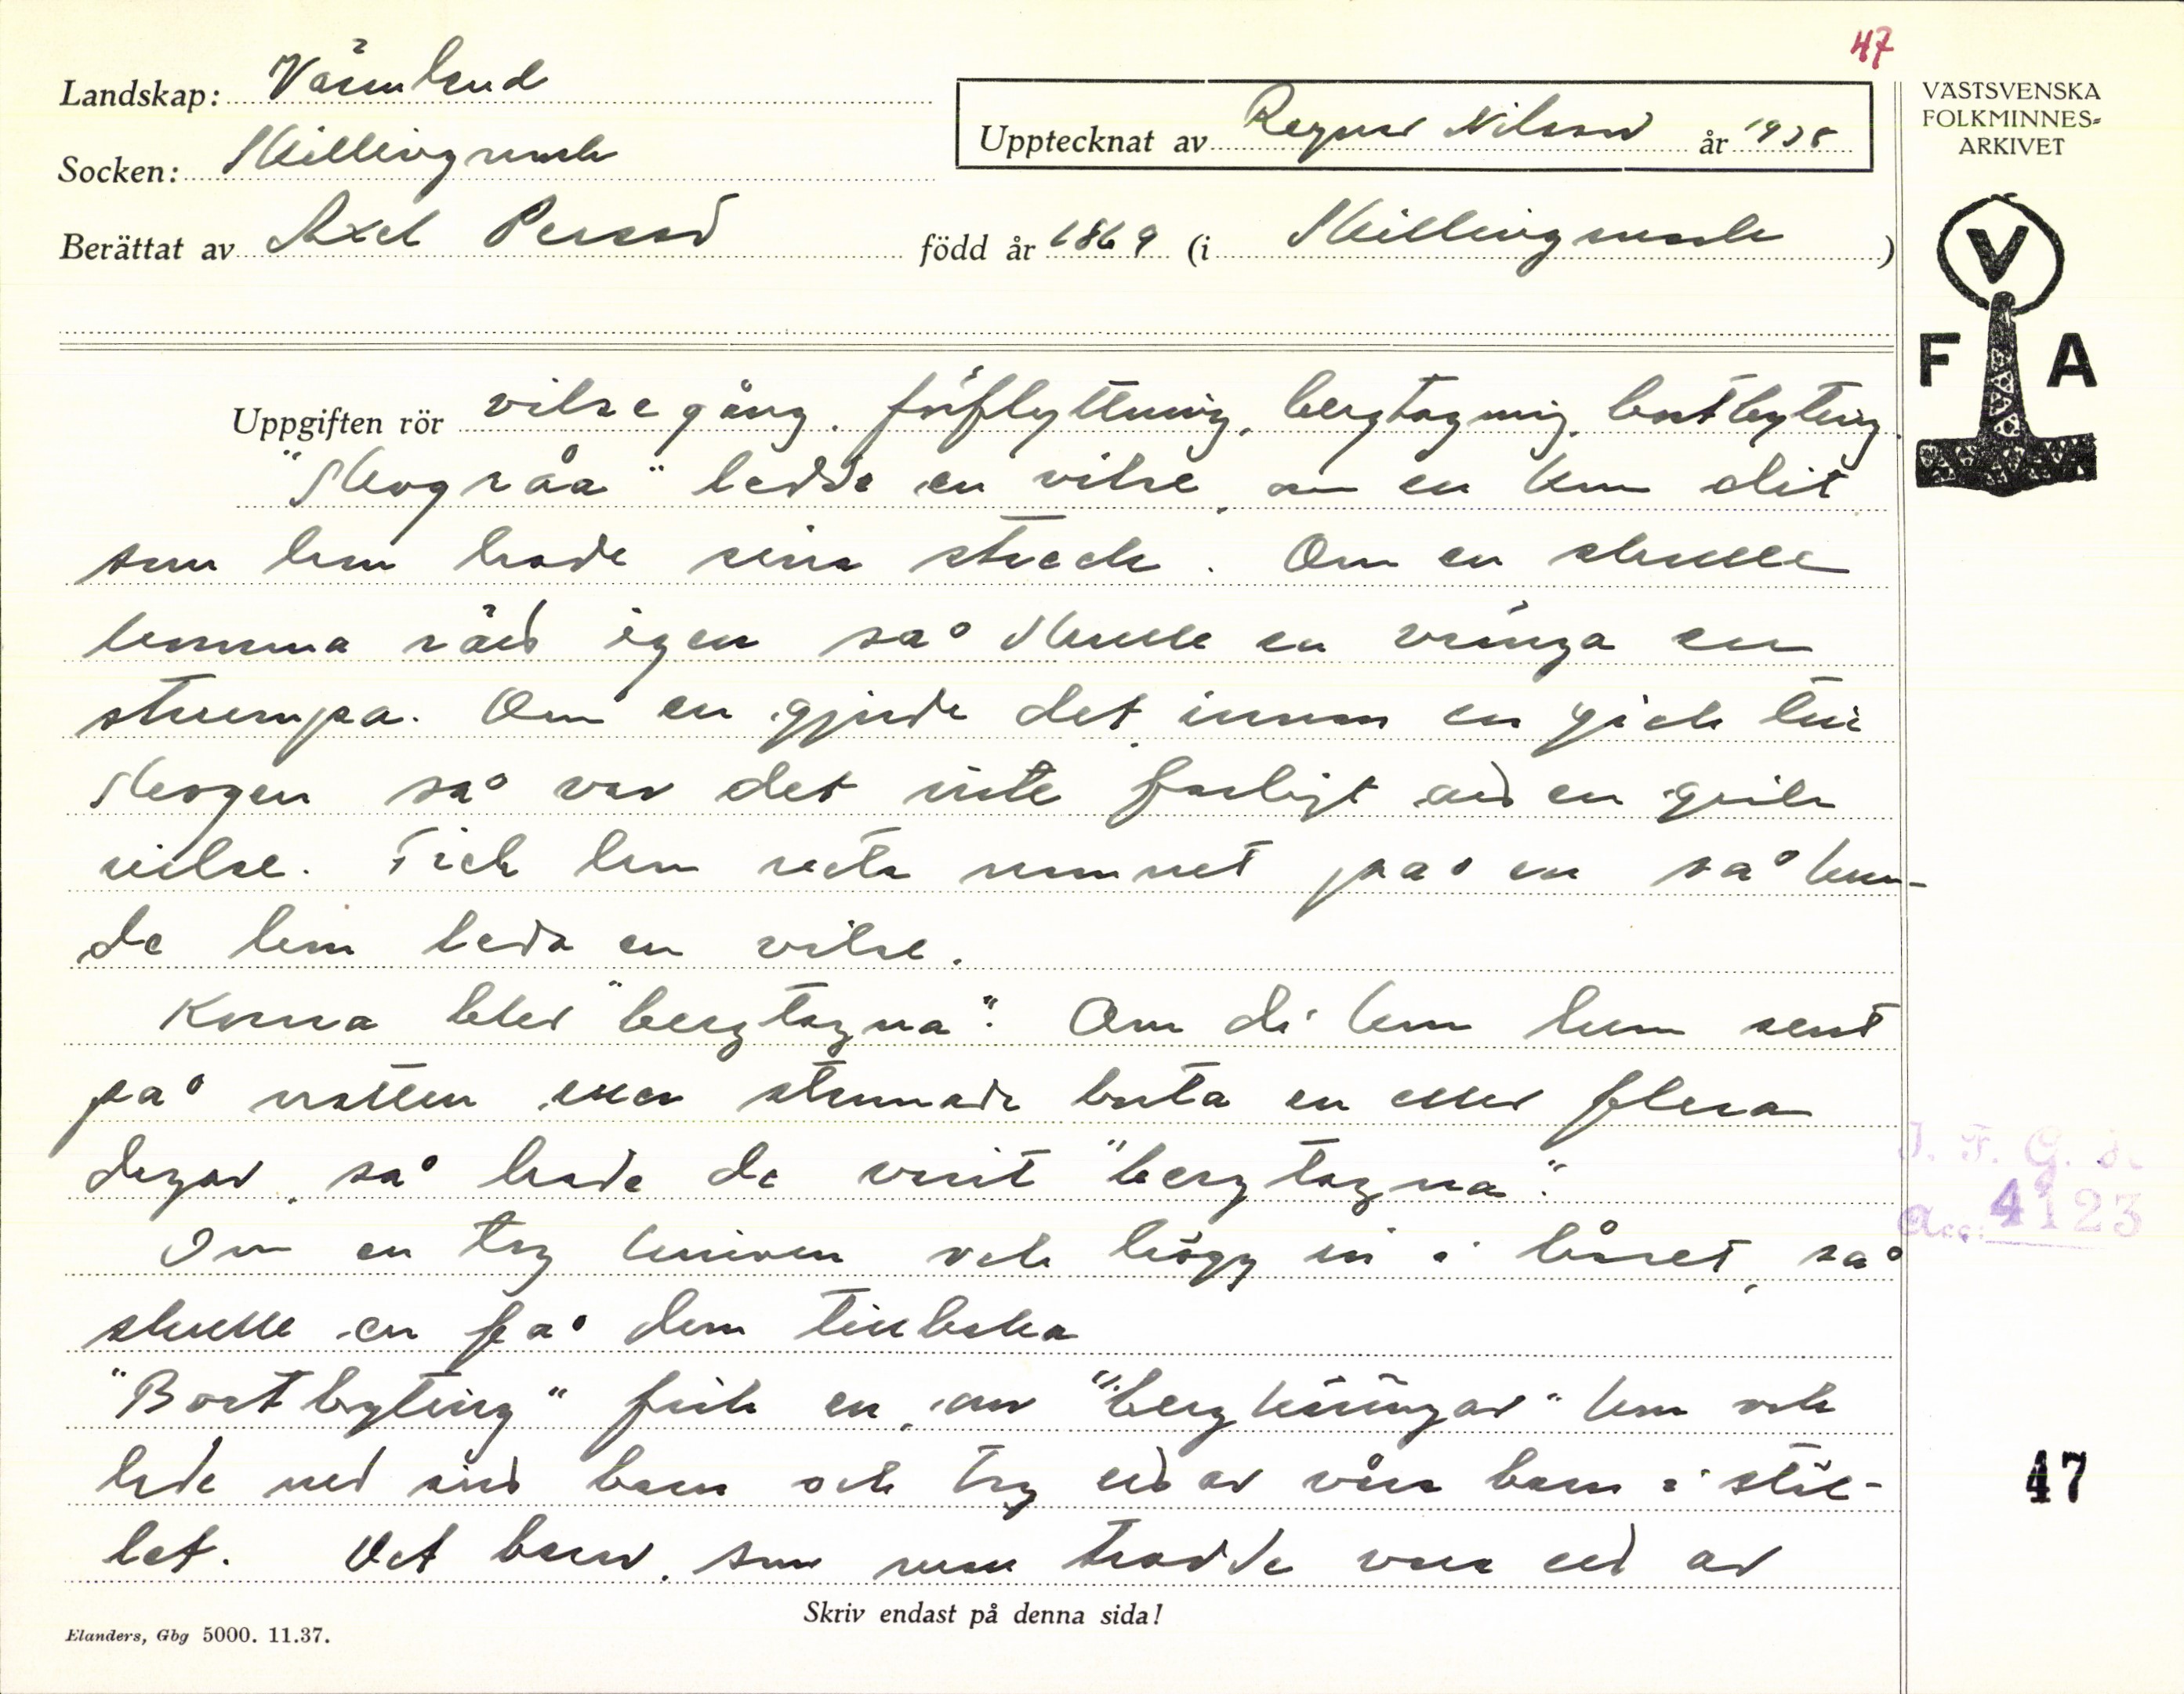 47
Landskap: Värmland
Socken: Skillingmark
Upptecknat av Ragnar Nilsson år 1938
Berättat av Axel Persson född år 1869 (i Skillingmark)
VÄSTSVENSKA
FOLKMINNES-
ARKIVET
V
F A
Uppgiften rör vilsegång, förflyttning, bergtagning, bortbyting.
"Skogråa" ledde en vilse, om en kom dit
som hon hade sina streck. Om en skulle
komma rätt igen så skulle en vränga en
strumpa. Om en gjorde det innan en gick till
skogen så var det inte farligt att en gick
vilse. Fick hon veta namnet på en så kun-
de hon leda en vilse.
Korna blev "bergtagna". Om di kom hem sent
på natten eller stannade borta en eller flera
dagar, så hade de vurit "bergtagna".
Om en tog kniven och högg in i båset, så
skulle en få dem tillbaka
"Bortbyting" fick en, om "bergkäringar" kom och
lade ned sitt barn och tog ett av våra barn i stäl-
let. Det barn, som man trodde vara ett av
I. F. G. H.
Acc: 4123
47
Skriv endast på denna sida!
Elanders, Gbg 5000. 11.37.